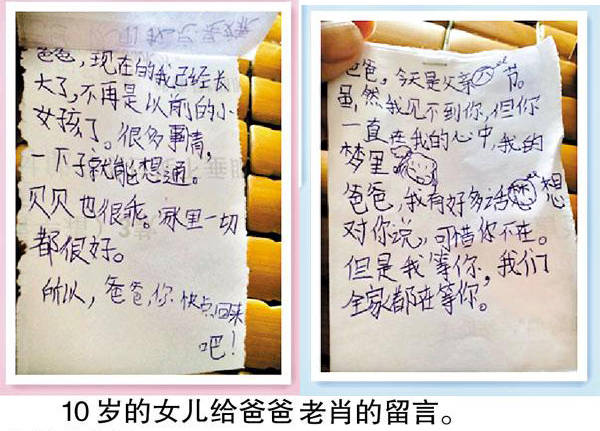 爸爸，现在的我已经长
大了，不再是以前的小
女孩了。很多事情，
一下子就能想通。
贝贝也很乖。家里一切
都很好。
所以，爸爸，你快点回来
吧！
爸爸，今天是父亲节。
虽然我见不到你，但你
一直在我的心中，我的
梦里
爸爸，我有好多话想
对你说，可惜你不在。
但是我等你，我们
全家都在等你。
10岁的女儿给爸爸老肖的留言。